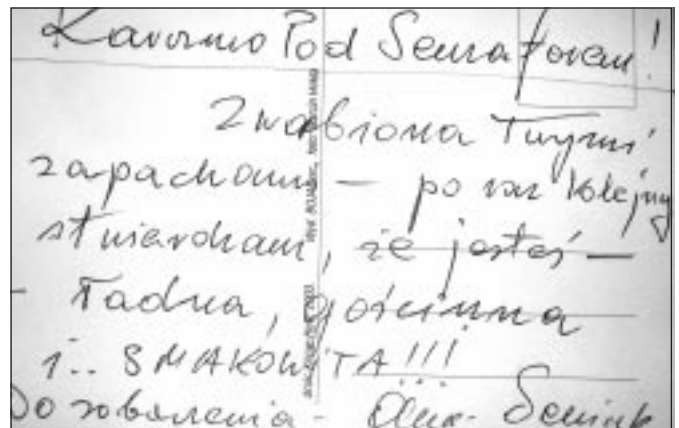 Kawiarnio Pod Senatorem!
Zwabiona Twymi
zapachami — po raz kolejny
stwierdzam, że jesteś —
- ładna, gościnna
i.. SMAKOWITA!!!
Do zobaczenia - Anna Seniuk